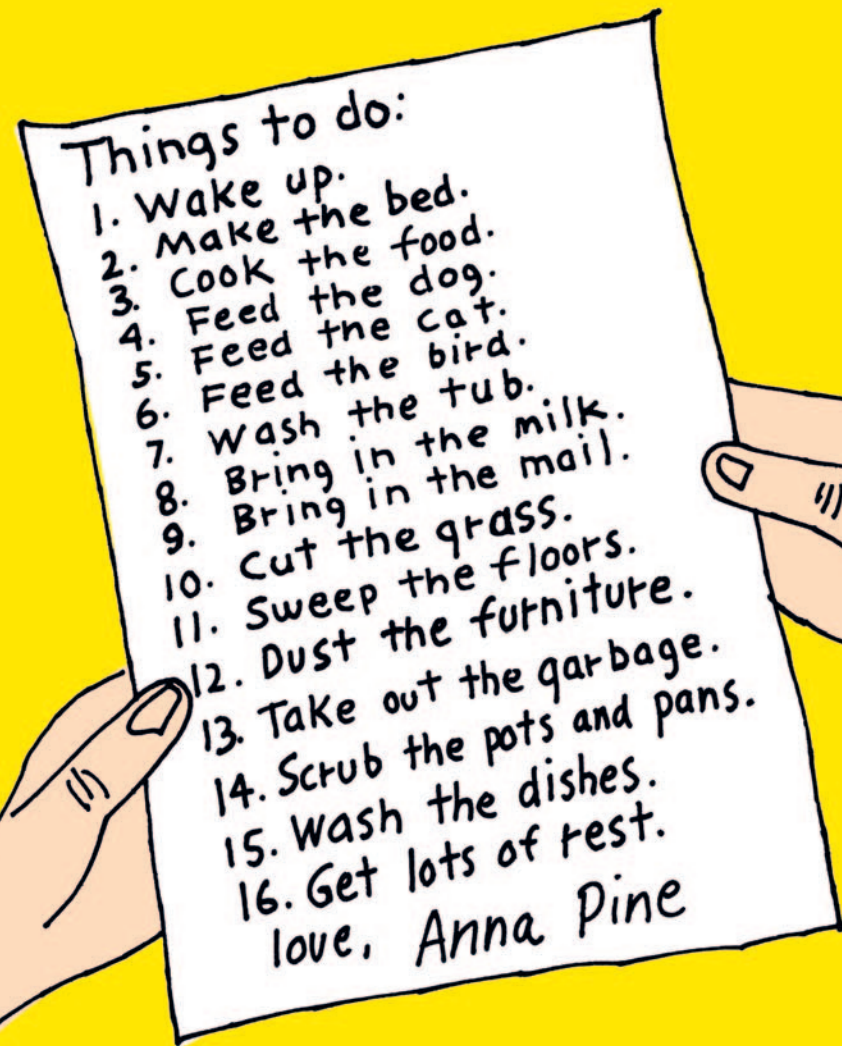 Things to do:
1. Wake up.
2. Make the bed.
3. Cook the food.
4. Feed the dog.
5. Feed the cat.
6. Feed the bird.
7. Wash the tub.
8. Bring in the milk.
9. Bring in the mail.
10. Cut the grass.
11. Sweep the floors.
12. Dust the furniture.
13. Take out the garbage.
14. Scrub the pots and pans.
15. Wash the dishes.
16. Get lots of rest.
love, Anna Pine